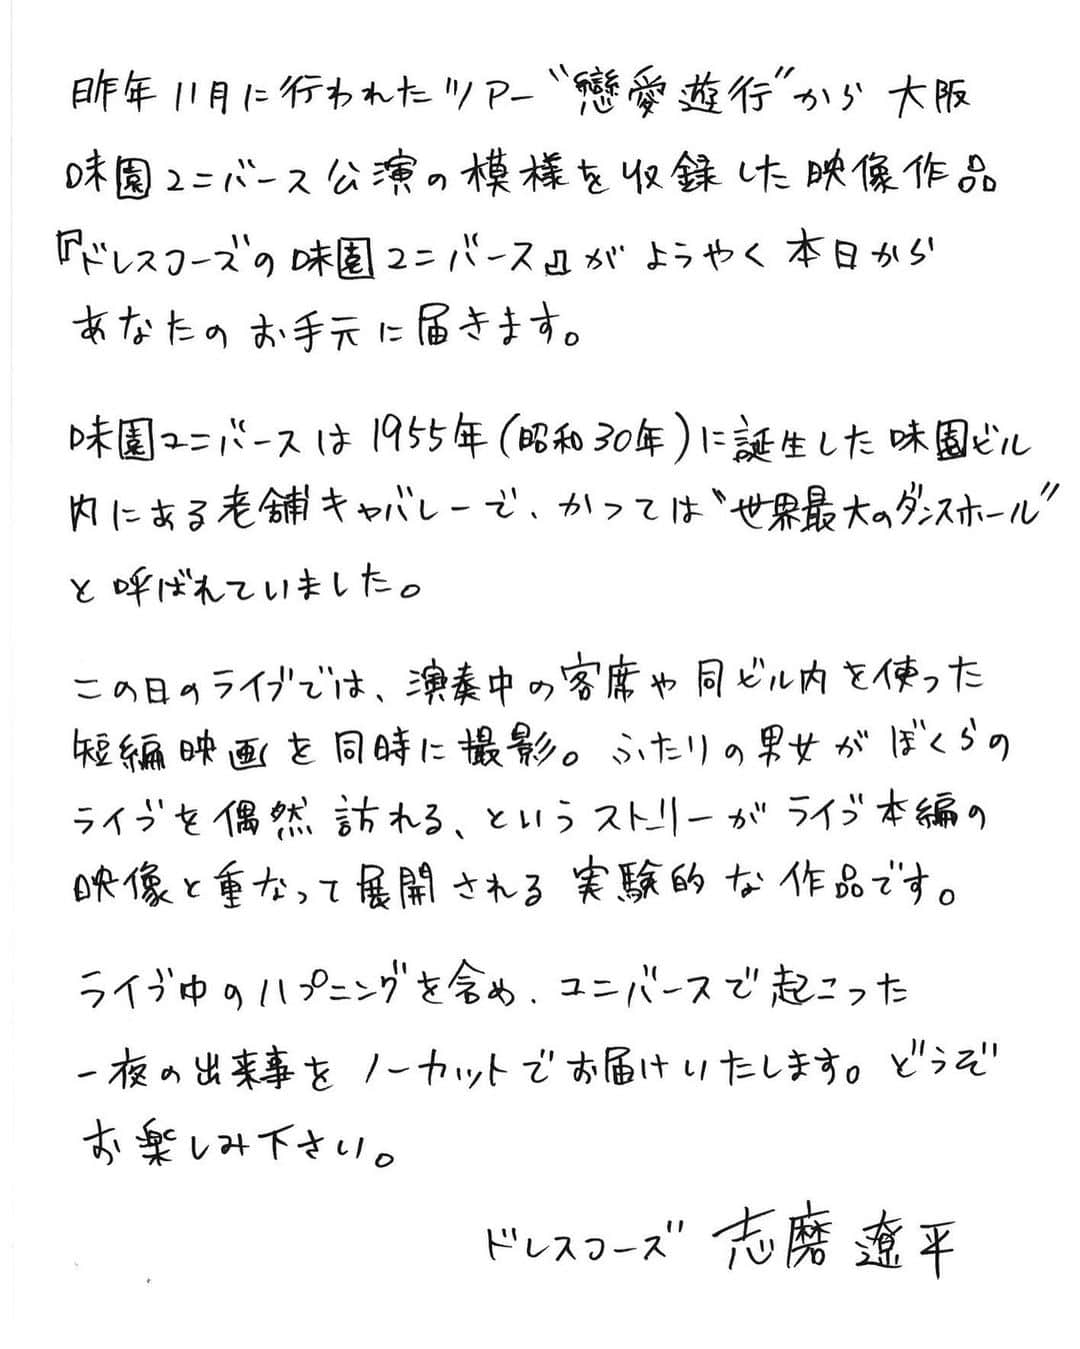 昨年11月に行われたツアー“戀愛遊行”から 大阪
味園ユニバース公演の模様を収録した映像作品
『ドレスコーズの味園ユニバース』がようやく本日から
あなたのお手元に届きます。
味園ユニバースは1955年(昭和30年)に誕生した味園ビル
内にある老舗キャバレーで、かつては“世界最大のダンスホール”
と呼ばれていました。
この日のライブでは、演奏中の客席や同ビル内を使った
短編映画を同時に撮影。ふたりの男女がぼくらの
ライブを偶然訪れる、というストーリーがライブ本編の
映像と重なって展開される実験的な作品です。
ライブ中のハプニングを含め、ユニバースで起こった
一夜の出来事をノーカットでお届けいたします。どうぞ
お楽しみ下さい。
ドレスコーズ 志磨遼平